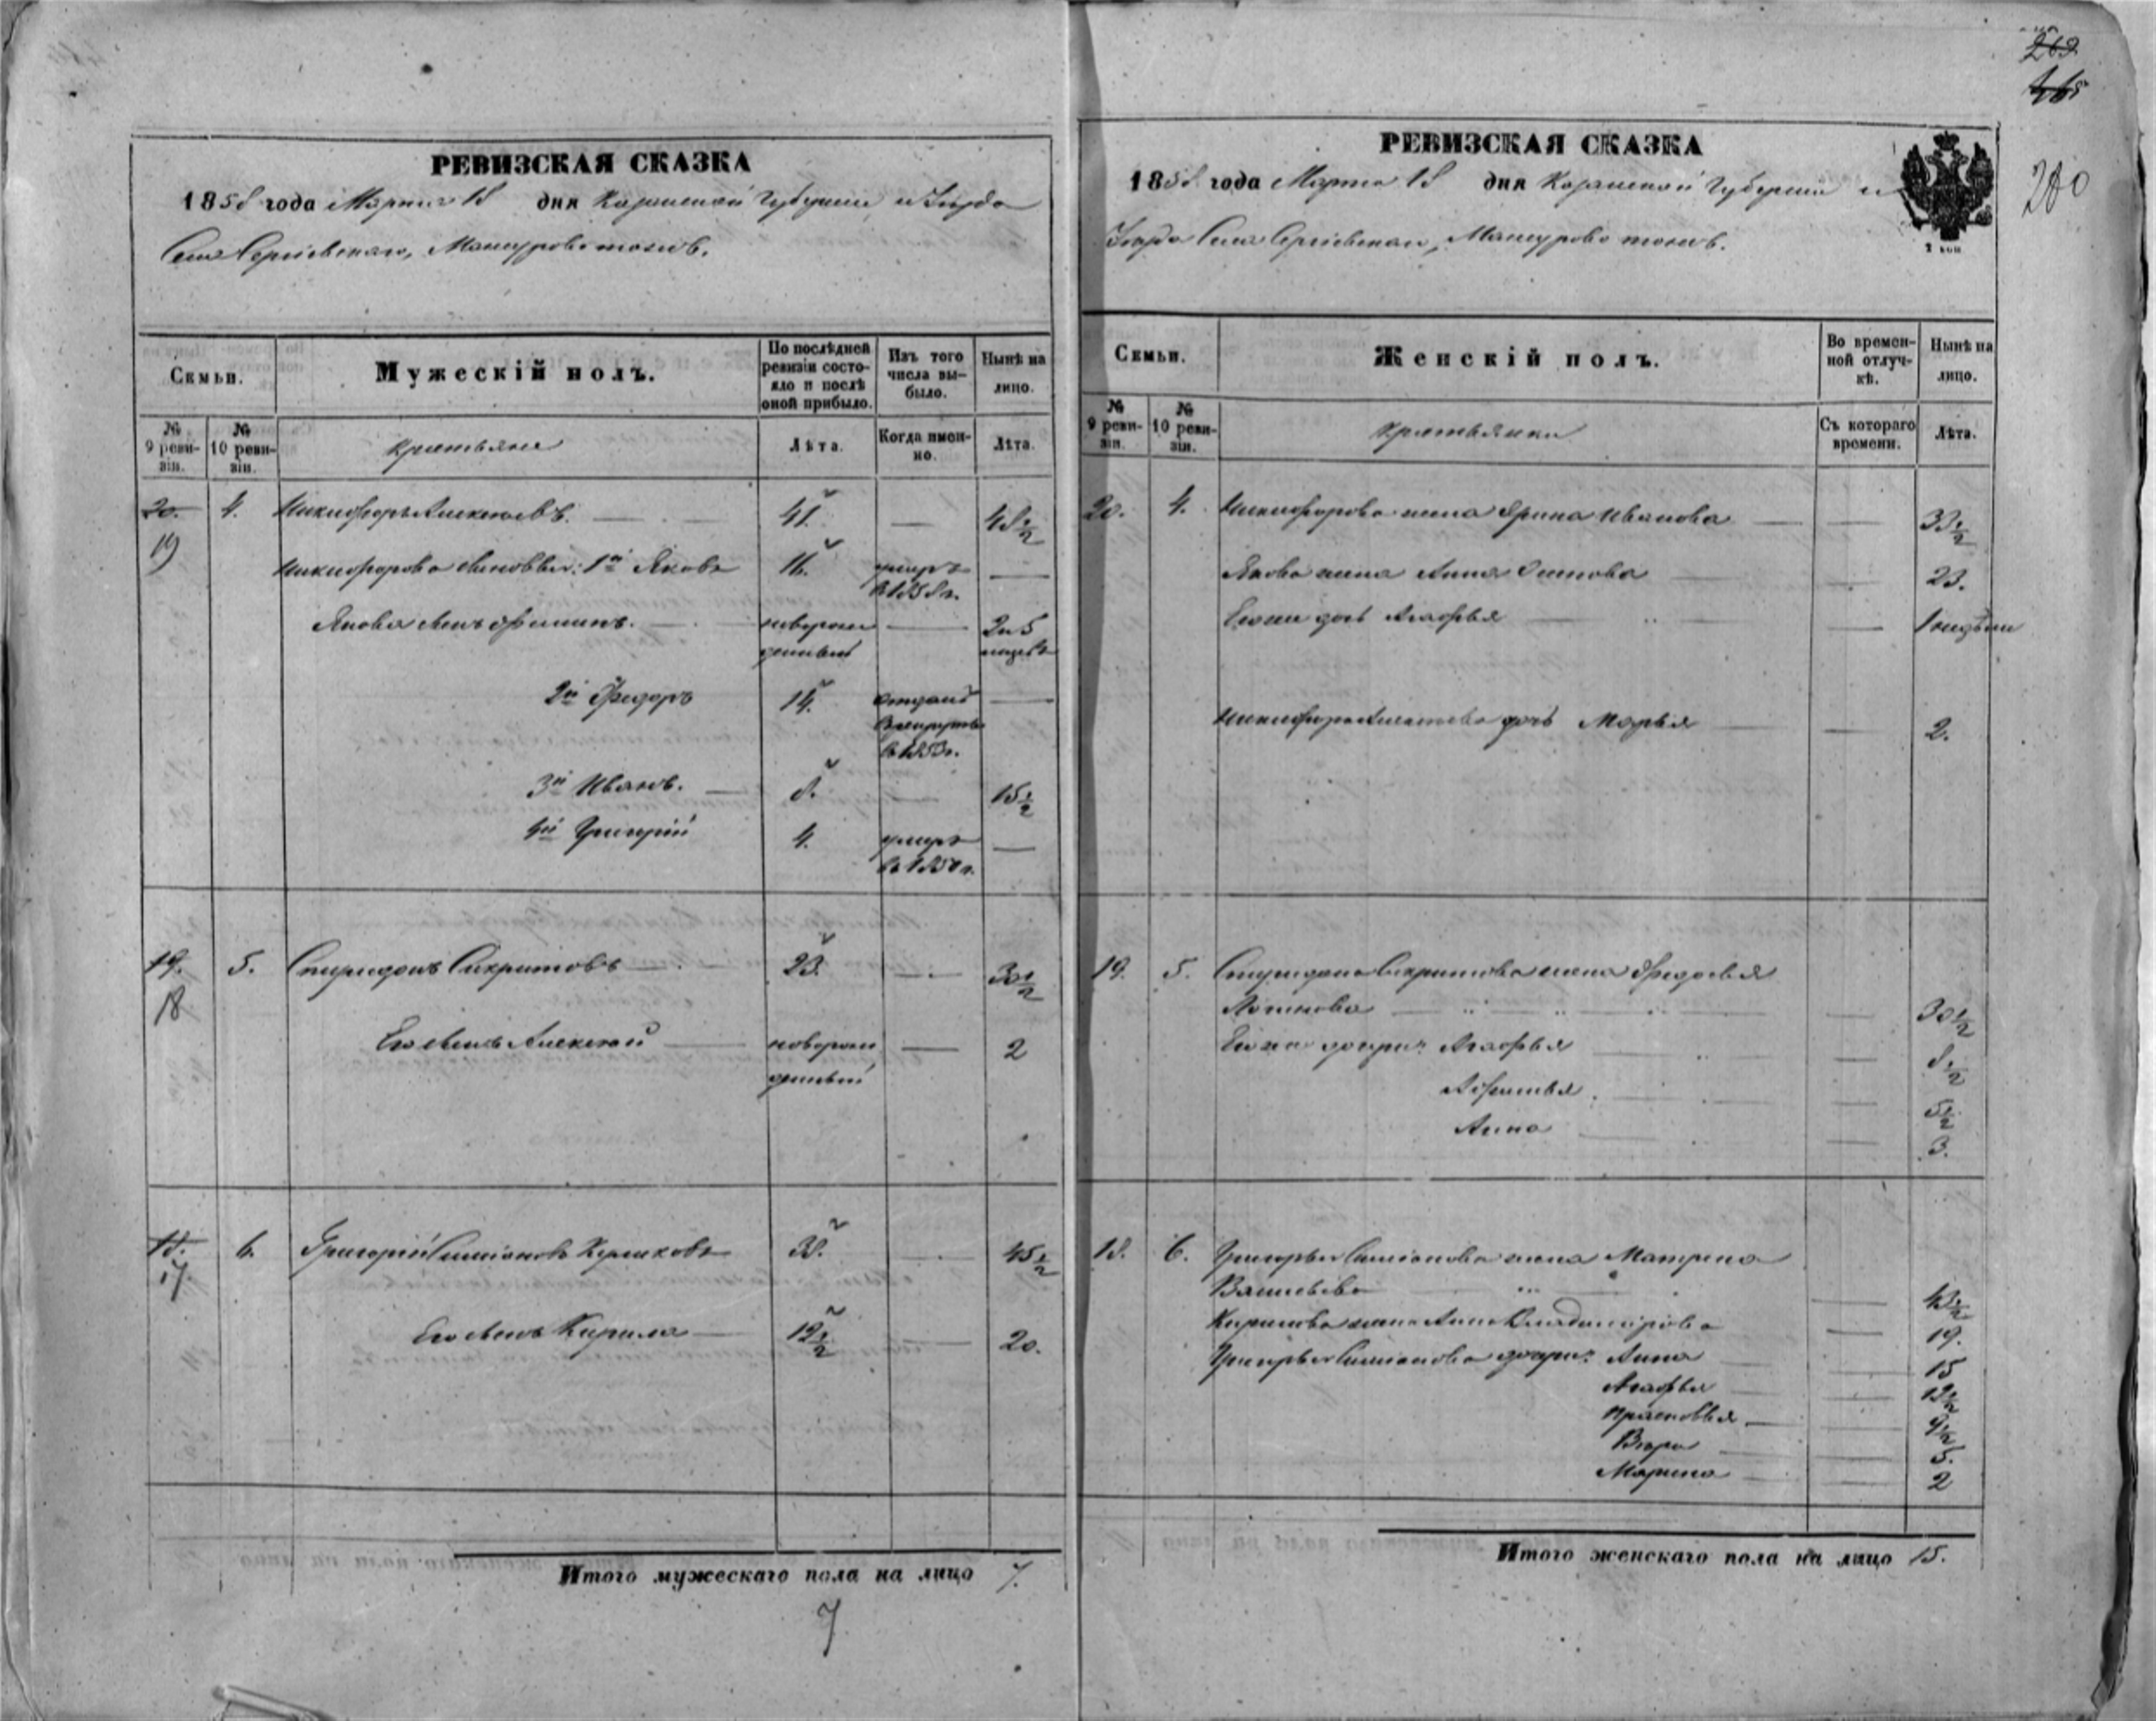 РЕВИЗСКАЯ СКАЗКА
1858 года Марта 18 дня Казанской Губерніи и Уѣзда
Села Сергіевскаго, Мансурово тожъ.
Семьи.
Мужескій полъ.
По послѣдней ревизіи состояло и послѣ оной прибыло.
Изъ того числа выбыло.
Нынѣ на лицо.
№ 9 ревизіи.
№ 10 ревизіи.
крестьяне
Лѣта.
Когда именно.
Лѣта.
20. 4. Никифоръ Алексѣевъ. 41. 48 1/2
19
Никифорова сыновья: 1й Яковъ 16. умеръ
в 1858 г.
Якова сынъ Филипъ. новорож 2 и 5
денный мѣсцъ
2й Федоръ 14. отданъ
в рекруты
в 1853 г.
3й Иванъ. 8. 15 1/2
4й Григорій 4. умеръ
в 1850 г.
19. 5. Спиридонъ Сакритовъ 23. 30 1/2
18
Его сынъ Алексѣй новорож 2
денный
18. 6. Григорій Симіоновъ 38. 45 1/2
17.
Его сынъ Кирила 12 1/2 20.
Итого мужескаго пола на лицо 7.
7
269
200
РЕВИЗСКАЯ СКАЗКА
1858 года Марта 18 дня Казанской Губерніи и
Уѣзда Села Сергіевскаго, Мансурово тожъ.
Семьи.
Женскій полъ.
Во временной отлучкѣ.
Нынѣ на лицо.
№ 9 ревизіи.
№ 10 ревизіи.
крестьянки
Съ котораго времени.
Лѣта.
20. 4. Никифорова жена Арина Иванова 33 1/2
Якова жена Анна Осипова 23.
Его же дочь Агафья 1 недѣли
Никифора Алексѣева дочь Марья 2.
19. 5. Спиридона Сакритова жена Федосья
Логинова 30 1/2
Его же дочри: Агафья 8 1/2
Афимья 5 1/2
Анна 3.
18. 6. Григорья Симіонова жена Матрена
Васильева 43 1/2
Кирилова жена Анна Владимірова 19.
Григорья Симіонова дочри: Анна 15
Агафья 12 1/2
Прасковья 9 1/2
Вѣра 5.
Марина 2
Итого женскаго пола на лицо 15.